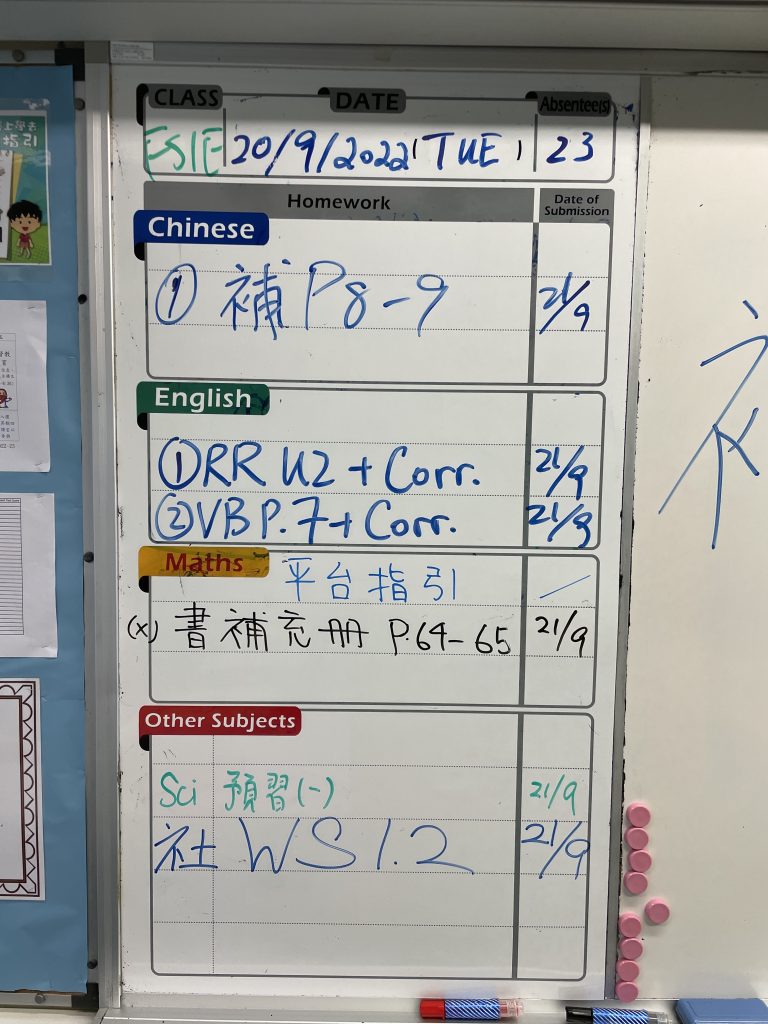 CLASS DATE Absentee(s)
FSIE 20/9/2022 (TUE) 23
Homework Date of Submission
Chinese
① 補 P8-9 21/9
English
① RR U2 + Corr. 21/9
② VB P.7 + Corr. 21/9
Maths
平台指引 /
(x) 書補充冊 P.64-65 21/9
Other Subjects
Sci 預習(一) 21/9
社 WS 1.2 21/9
上學去
指引